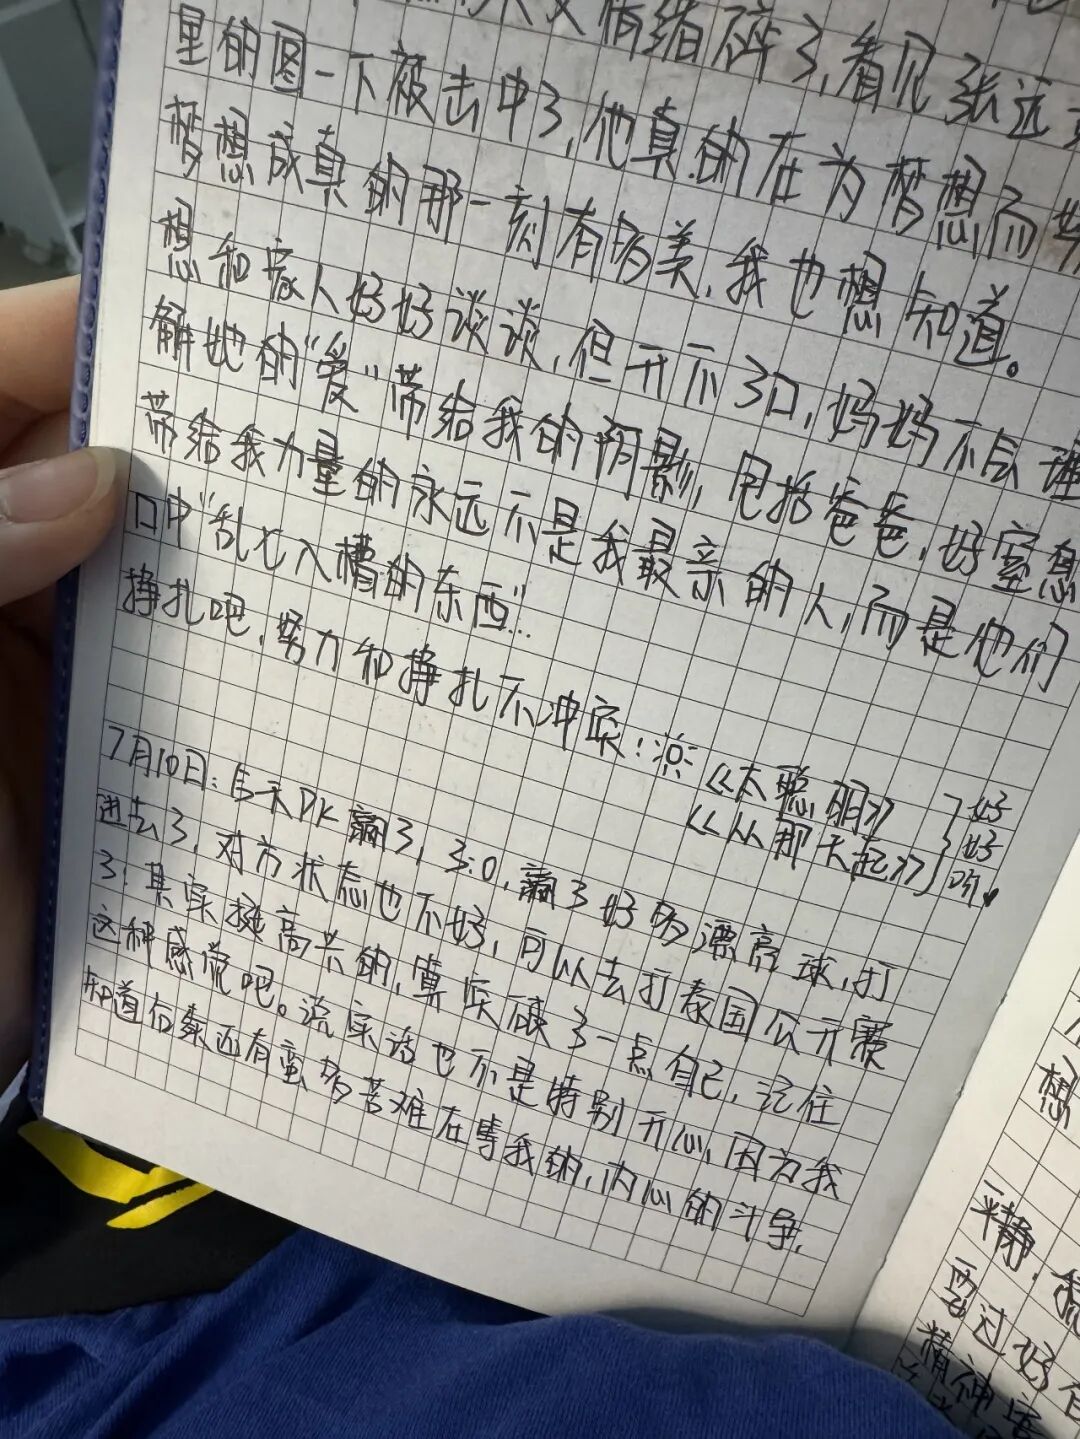 情绪碎了,看见张远
里的图一下被击中了,他真的在为梦想而
梦想成真的那一刻有多美,我也想知道。
想和家人好好谈谈,但开不了口,妈妈不会理
解她的“爱”带给我的阴影,包括爸爸,好窒息
带给我力量的永远不是我最亲的人,而是他们
口中“乱七八糟的东西”...
挣扎吧,努力和挣扎不冲突!
《太聪明》
《从那天起》
好好听
7月10日:乌禾PK赢了,3:0,赢了好多漂亮球,打
进去了,对方状态也不好,可以去打泰国公开赛
了,其实挺高兴的,算突破了一点自己,记住
这种感觉吧。说实话也不是特别开心,因为我
知道在泰还有蛮多苦难在等我的,内心的斗争,
想
平静,
要过好
精神